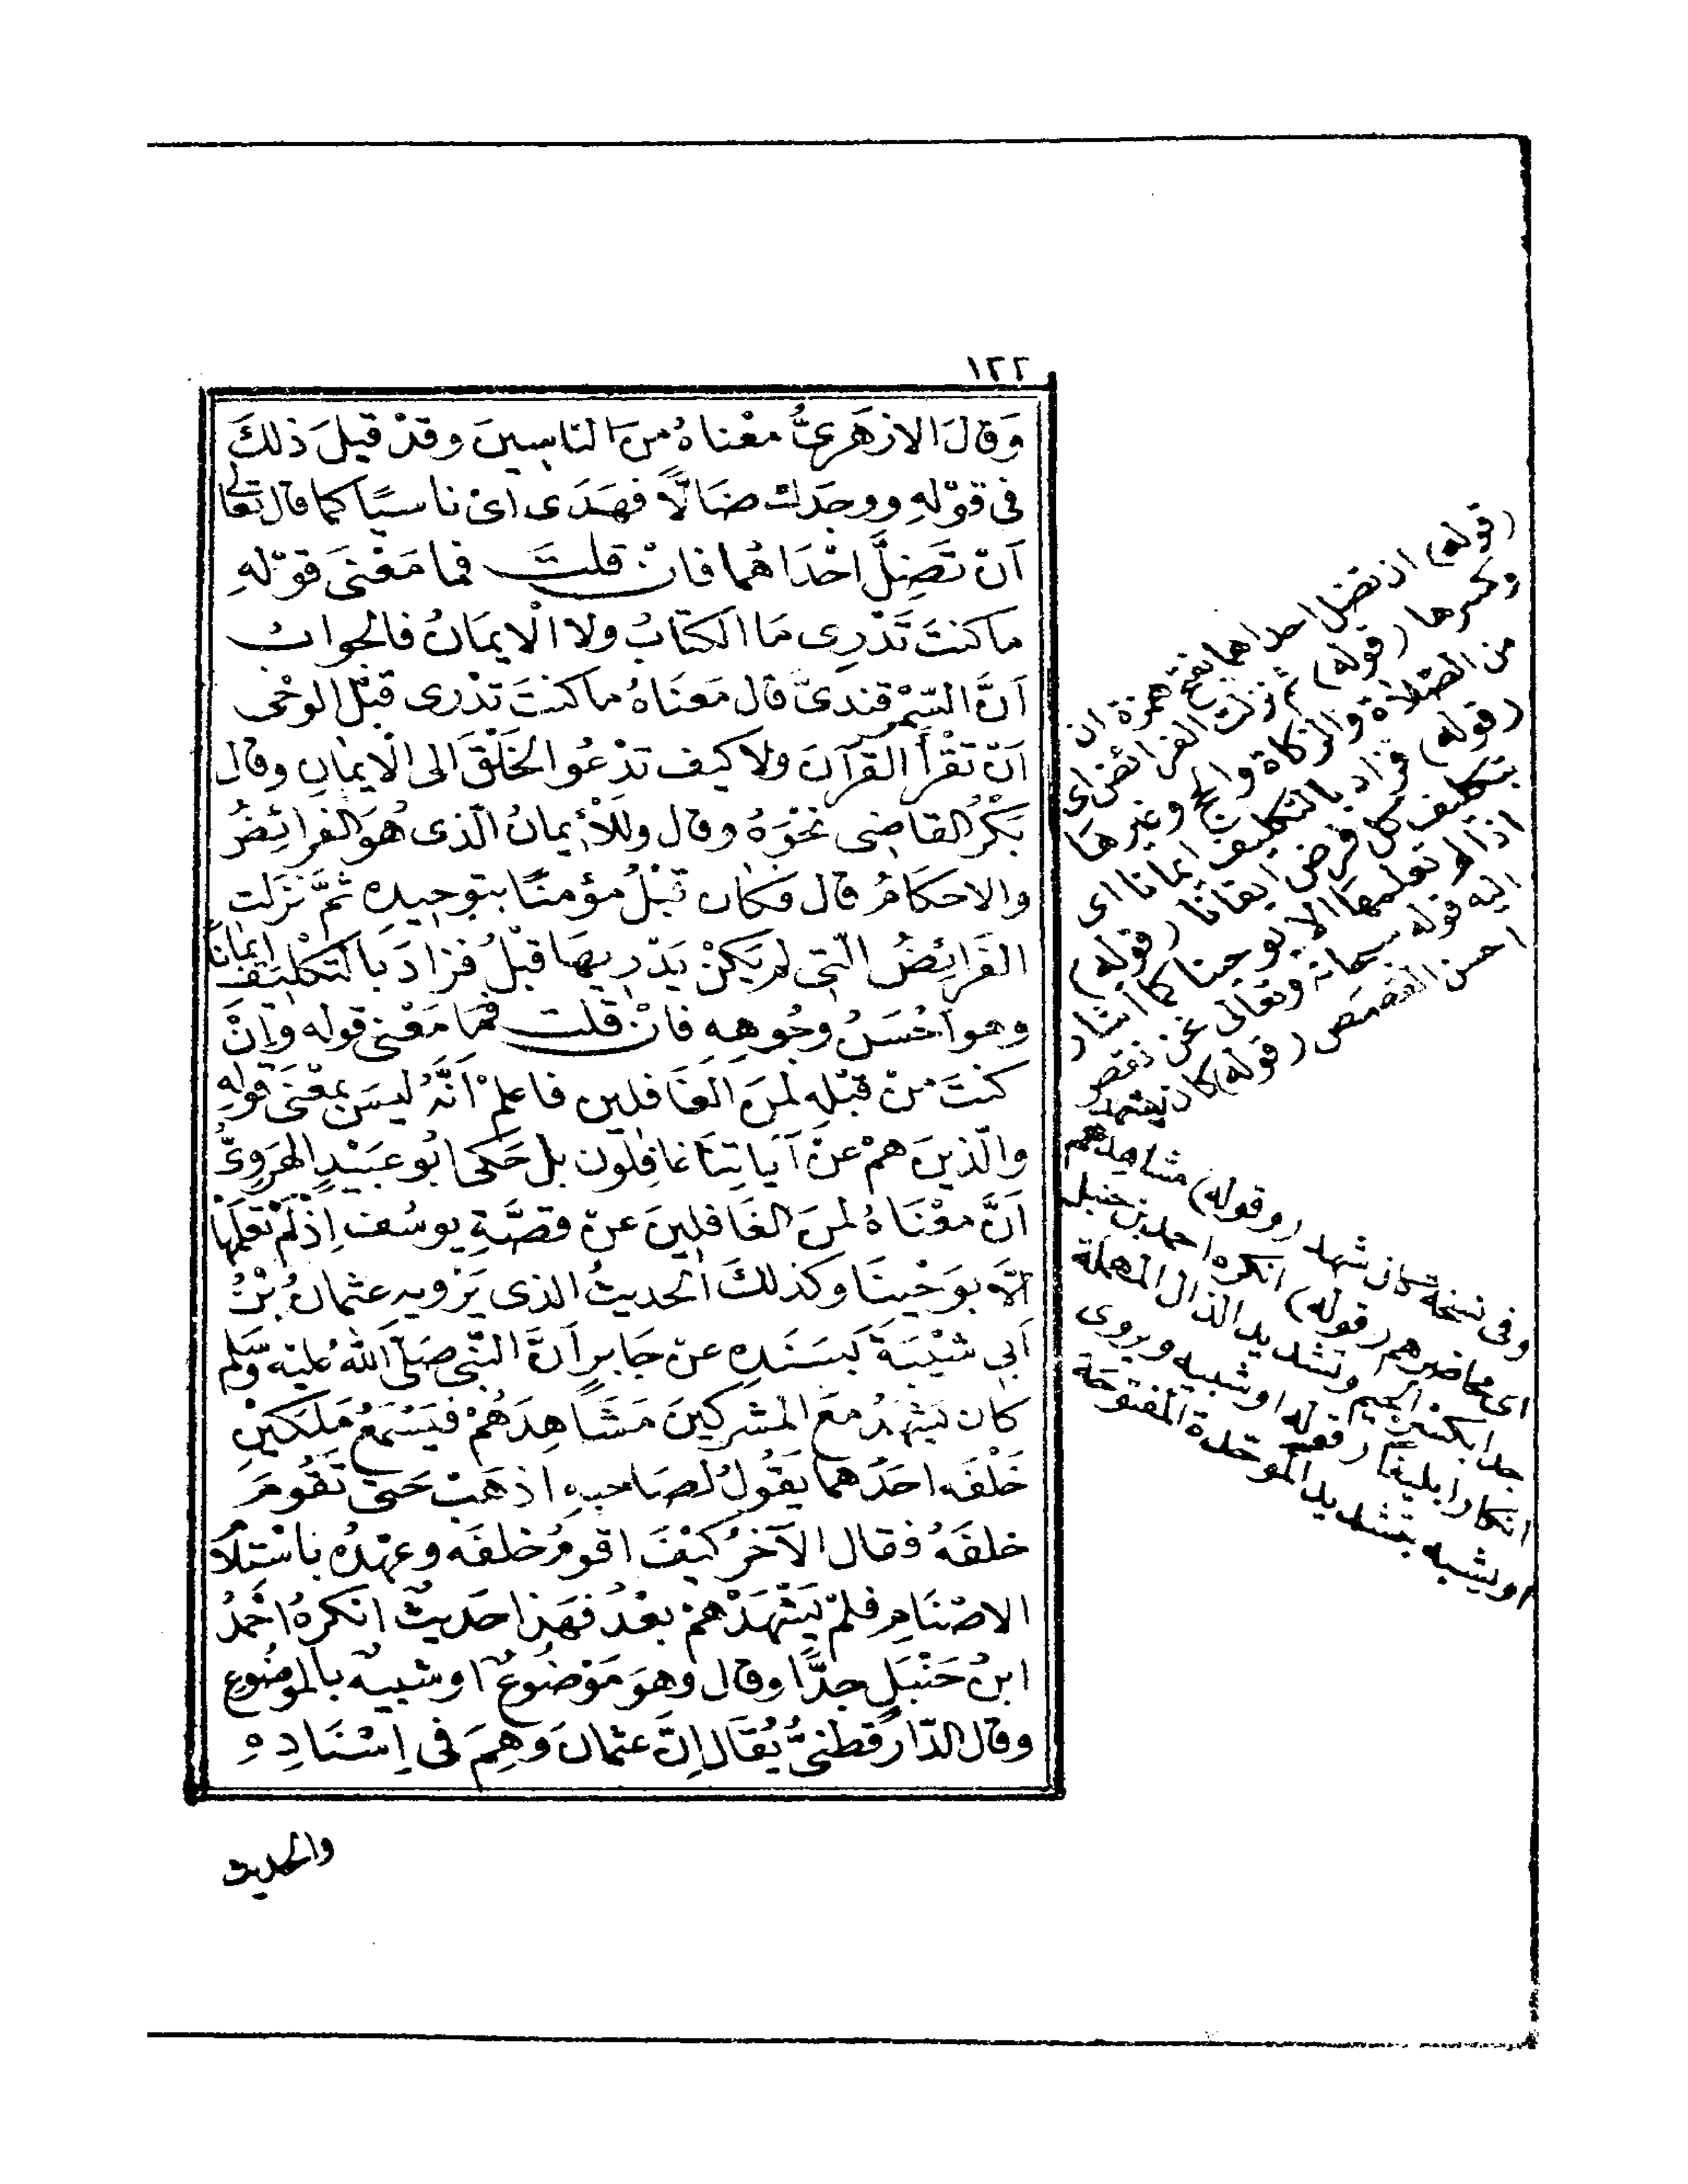 ١٢٢
وَقَالَ الازْهَرِىُّ مَعْنَاهُ مِنَ النَّاسِينَ وقدْ قيلَ ذلكَ
فى قوْلهِ ووجَدَكَ ضَالًّا فهَدَى اىْ ناسيًا كما قال تعالى
اَنْ تَضِلَّ احْدَاهُما فانْ قلتَ فما مَعْنَى قوْلهِ
ماكنتَ تَدْرِى مَا الكِتَابُ ولا الْايمَانُ فالجوابُ
اَنَّ السَّمَرْقندىَّ قال مَعْنَاهُ ماكنتَ تدْرى قبْل الوحْى
اَنْ تَقْرَأَ القرْآنَ ولاكيف تدْعُو الخَلْقَ الى الْايمانِ وقال
بَكْرٌ القاضِى نحْوَهُ وقال ولا الْايمانُ الّذى هُوَ الفرائِضُ
والاحكامُ قال فكان قبْلُ مؤمنًا بتوحِيدِهِ ثمَّ نَزَلت
الفَرَائِضُ الّتى لم يَكنْ يَدْرِيهَا قبْلُ فزادَ بالتّكْليفِ إيمانًا
وهو احْسَنُ وجُوهِهِ فانْ قلت فَمَا مَعْنى قوله وَاِنْ
كنتَ مِنْ قبْلِهِ لمنَ الغَافِلين فاعلمْ انَّهُ ليسَ بمعْنَى قولهِ
والّذينَ همْ عنْ آياتِنَا غافِلون بل حَكى ابُو عبَيْدٍ الهَرَوِىُّ
اَنَّ معْنَاهُ لمنَ الغَافِلينَ عنْ قصَّةِ يوسُف اِذْ لَمْ تَعْلَمْهَا
الَّا بوَحْينَا وكذلكَ الحديثُ الذى يَرْويهِ عثمانُ بْنُ
اَبى شيْبَةَ بِسَنَدِهِ عنْ جَابرٍ اَنَّ النَّبىَّ صَلَّى اللهُ عليْهِ وَسَلم
كان يَشْهَدُ معَ المشركينَ مَشَاهِدَهُمْ فيَسْمَعُ مَلَكَيْنِ
خَلْفَه احَدُهما يَقُولُ لصَاحبِهِ اذهَبْ حَتى تَقُومَ
خلفَهُ فقال الآخرُ كيْفَ اقومُ خلفَه وعهْدُه باسْتِلَامِ
الاصْنَامِ فلمْ يَشْهَدْهمْ بعْدُ فهَذا حَديثٌ انكرهُ احْمَدُ
ابنُ حَنْبَلٍ جدًّا وقال وهوَ مَوْضُوعٌ او شبيهٌ بالموضُوعِ
وقال الدّارَقطنىُّ يُقَال اِنَّ عثمانَ وَهِمَ فى اِسْنَادِهِ
والحديث
(قوله) ان تضل احداهما بفتح همزة ان
وكسرها (قوله) ثم نزلت الفرائض اى
من الصّلاة والزكاة والحج وغيرها
(قوله) فزاد بالتكليف ايمانا اى
بتكليف كل فرض ايقانًا (قوله)
اذ لم تعلمها الا بوحينا كما اشار
اليه قوله سبحانه وتعالى نحن نقص
احسن القصص (قوله) كان يشهد
وفى نسخة كان شهد (وقوله) مشاهدهم
اى محاضرهم (قوله) انكره احمد بن حنبل
جدا بكسر الجيم وتشديد الدال المهملة
انكارا بليغا (قوله) او شبيه ويروى
او يشبه بتشديد الموحّدة المفتوحة